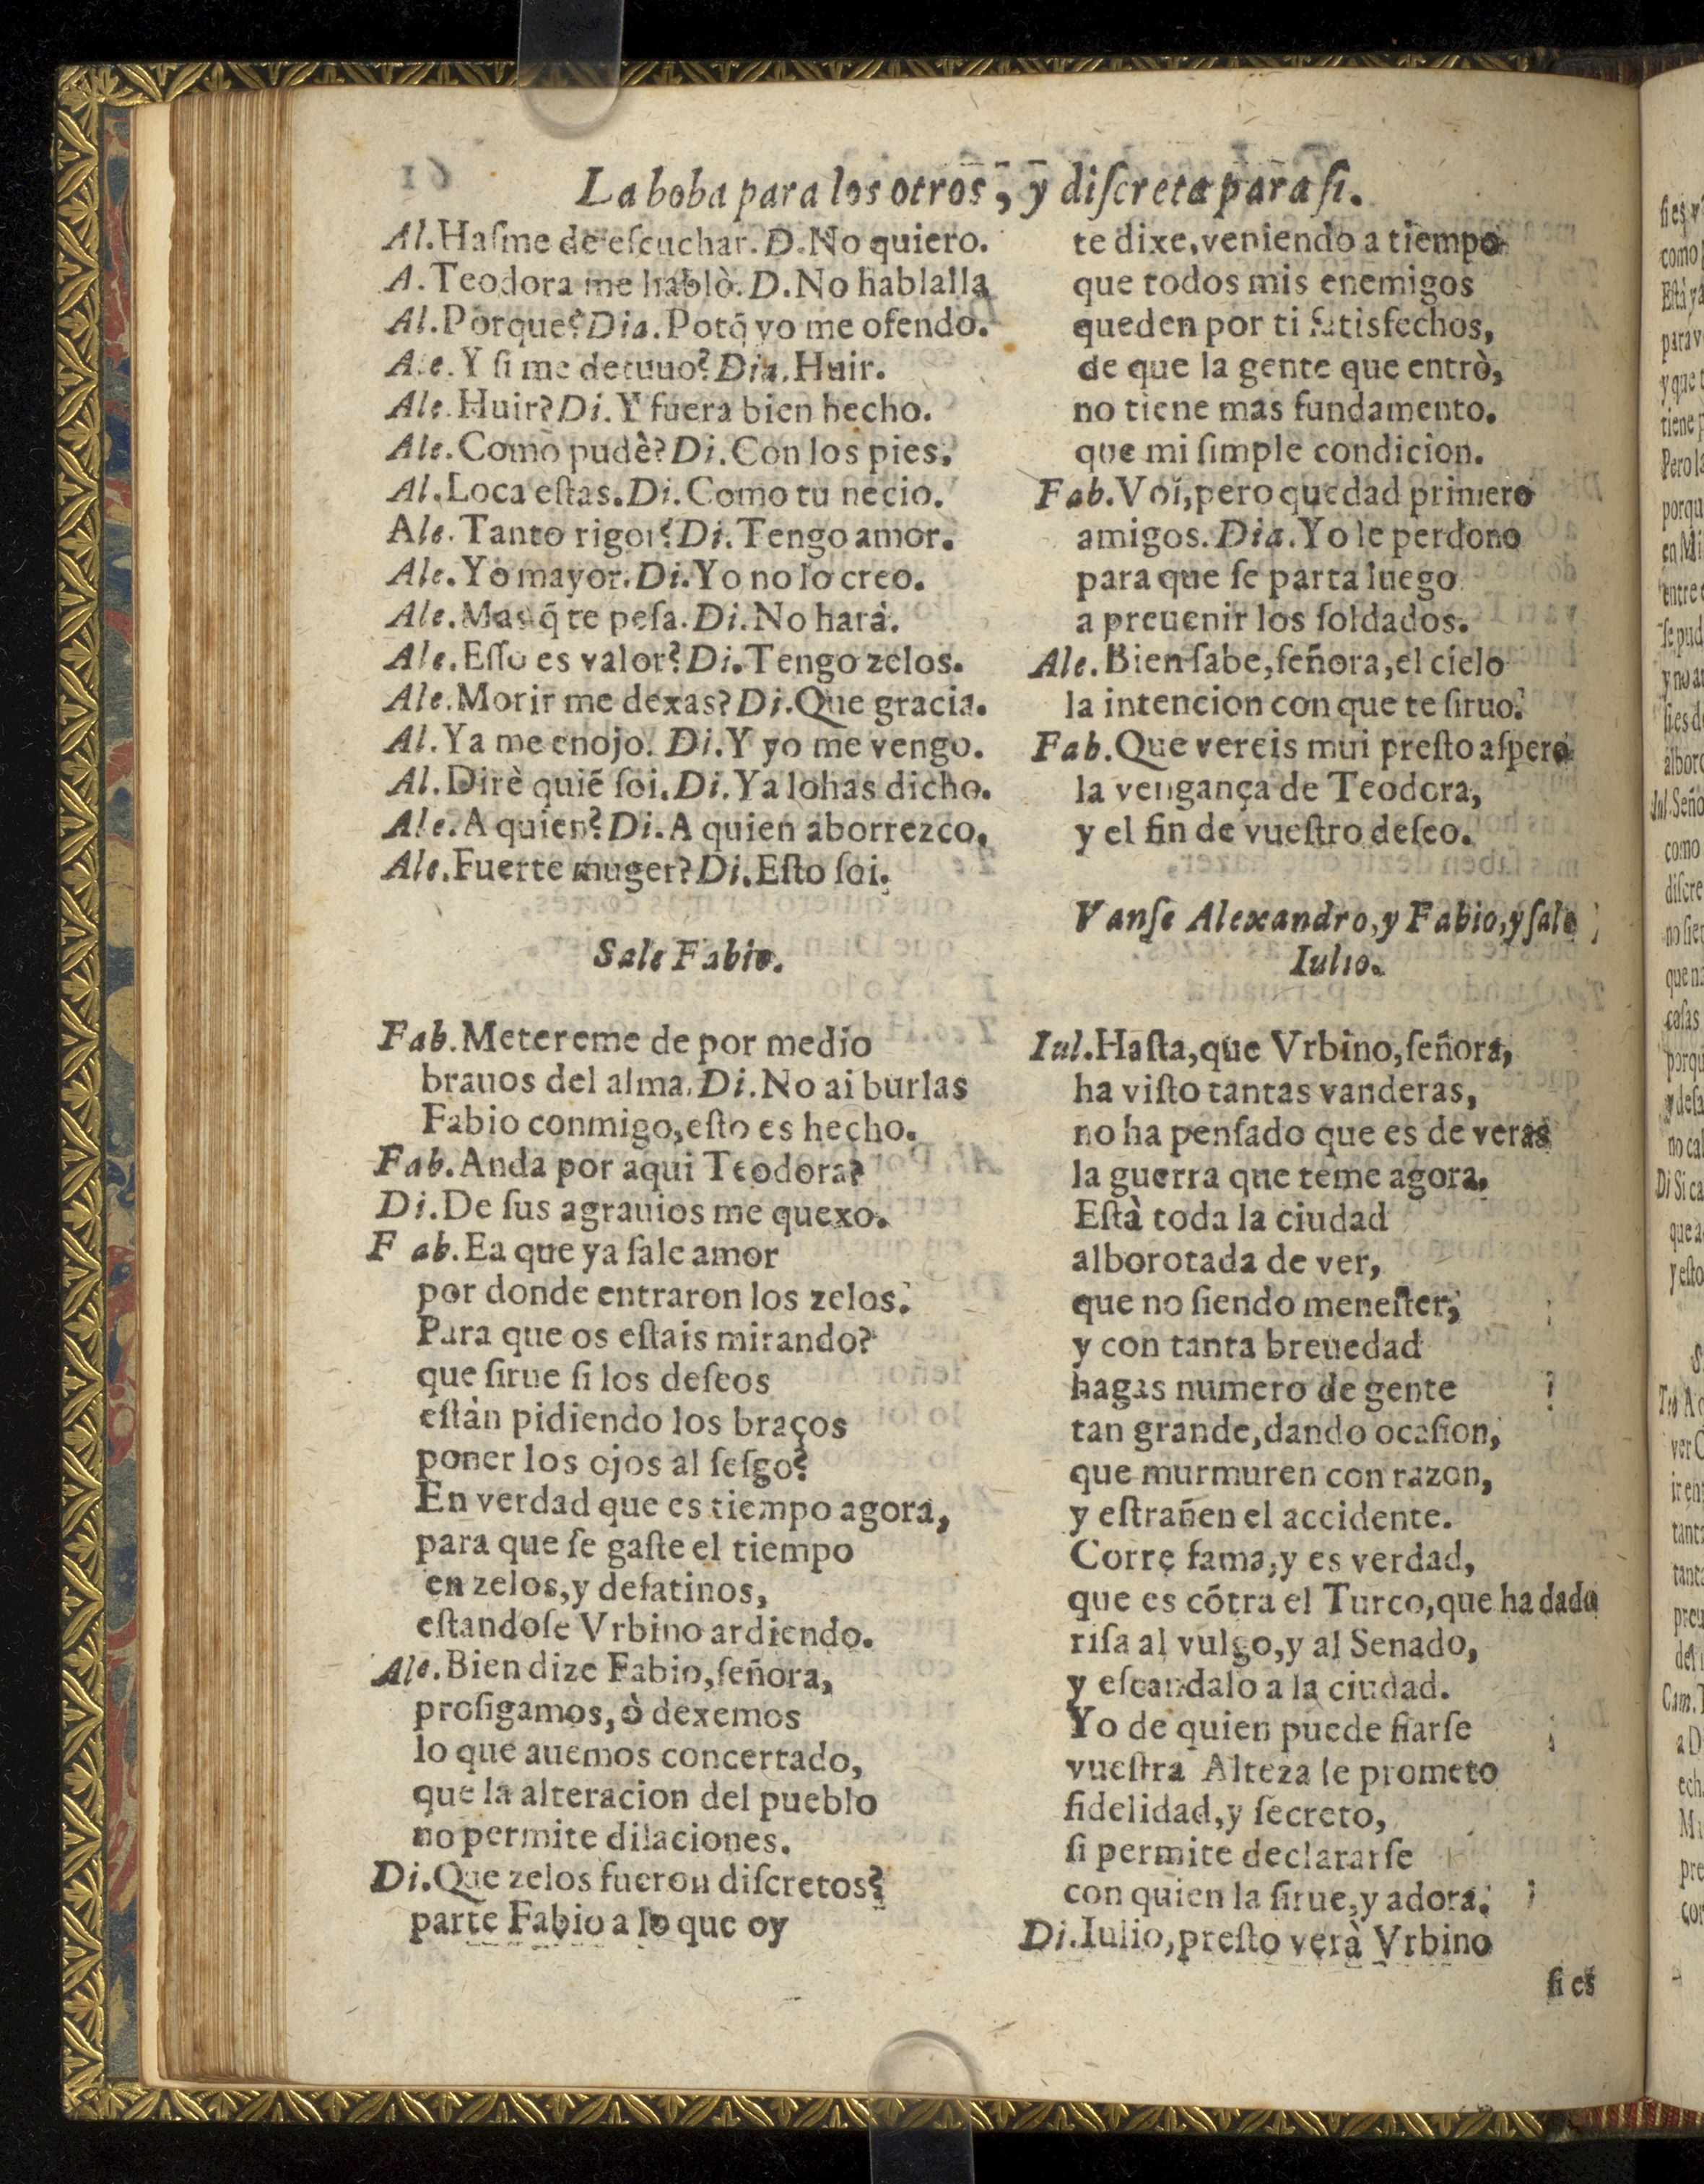 La boba para los otros, y diſcreta para ſi.
Al. Haſme de eſcuchar. D. No quiero.
A. Teodora me hablò. D. No hablalla
Al. Porque? Dia. Potq̃ yo me ofendo.
Ale. Y ſi me detuuo? Dia. Huir.
Ale. Huir? Di. Y fuera bien hecho.
Ale. Como pudè? Di. Con los pies.
Al. Loca eſtas. Di. Como tu necio.
Ale. Tanto rigor? Di. Tengo amor.
Ale. Yo mayor. Di. Yo no lo creo.
Ale. Mas q̃ te peſa. Di. No harà.
Ale. Eſſo es valor? Di. Tengo zelos.
Ale. Morir me dexas? Di. Que gracia.
Al. Ya me enojo. Di. Y yo me vengo.
Al. Dirè quiẽ ſoi. Di. Ya lo has dicho.
Ale. A quien? Di. A quien aborrezco.
Ale. Fuerte muger? Di. Eſto ſoi.
Sale Fabio.
Fab. Metereme de por medio
brauos del alma. Di. No ai burlas
Fabio conmigo, eſto es hecho.
Fab. Anda por aqui Teodora?
Di. De ſus agrauios me quexo.
Fab. Ea que ya ſale amor
por donde entraron los zelos.
Para que os eſtais mirando?
que ſirue ſi los deſeos
eſtàn pidiendo los braços
poner los ojos al ſeſgo?
En verdad que es tiempo agora,
para que ſe gaſte el tiempo
en zelos, y deſatinos,
eſtandoſe Vrbino ardiendo.
Ale. Bien dize Fabio, ſeñora,
proſigamos, ò dexemos
lo que auemos concertado,
que la alteracion del pueblo
no permite dilaciones.
Di. Que zelos fueron diſcretos?
parte Fabio a lo que oy
te dixe, veniendo a tiempo
que todos mis enemigos
queden por ti ſatisfechos,
de que la gente que entrò,
no tiene mas fundamento.
que mi ſimple condicion.
Fab. Voi, pero quedad primero
amigos. Dia. Yo le perdono
para que ſe parta luego
a preuenir los ſoldados.
Ale. Bien ſabe, ſeñora, el cielo
la intencion con que te ſiruo.
Fab. Que vereis mui preſto aſpero
la vengança de Teodora,
y el fin de vueſtro deſeo.
Vanſe Alexandro, y Fabio, y ſale
Iulio.
Iul. Haſta, que Vrbino, ſeñora,
ha viſto tantas vanderas,
no ha penſado que es de veras
la guerra que teme agora.
Eſtà toda la ciudad
alborotada de ver,
que no ſiendo meneſter,
y con tanta breuedad
hagas numero de gente
tan grande, dando ocaſion,
que murmuren con razon,
y eſtrañen el accidente.
Corre fama, y es verdad,
que es cõtra el Turco, que ha dado
riſa al vulgo, y al Senado,
y eſcandalo a la ciudad.
Yo de quien puede fiarſe
vueſtra Alteza le prometo
fidelidad, y ſecreto,
ſi permite declararſe
con quien la ſirue, y adora.
Di. Iulio, preſto verà Vrbino
ſi es